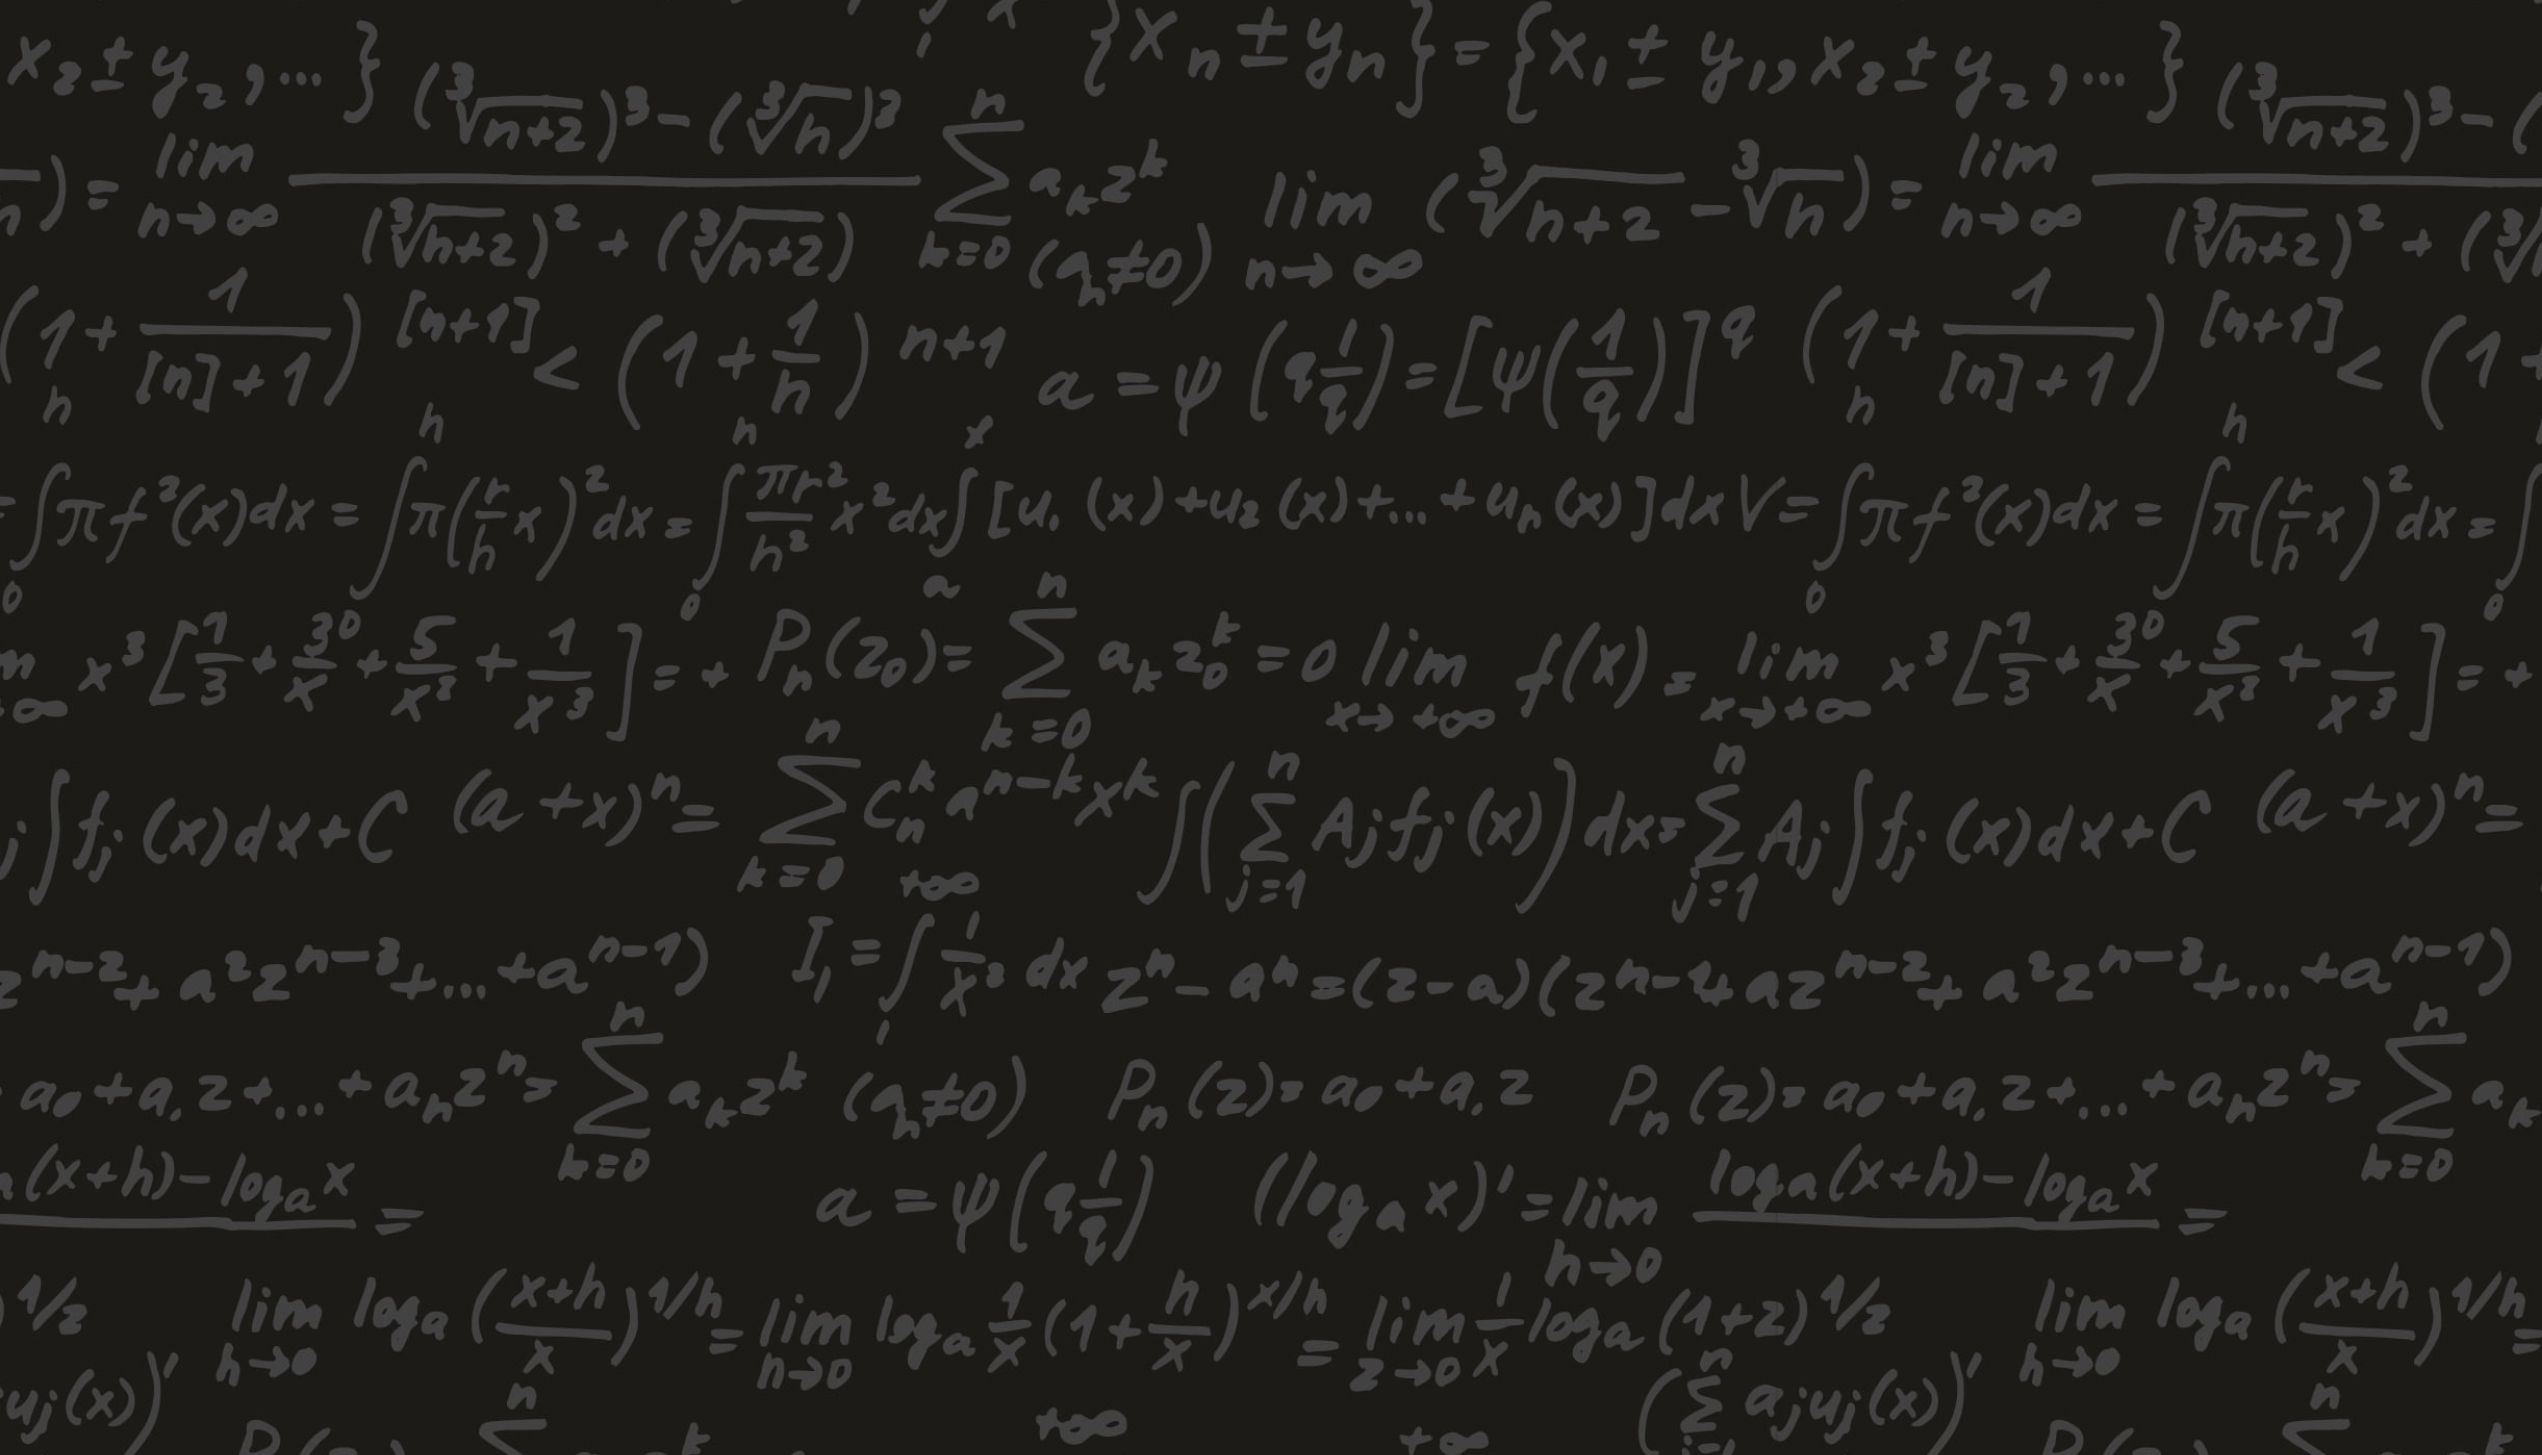 x₂ ± y₂, ... } {xₙ ± yₙ} = {x₁ ± y₁, x₂ ± y₂, ... }
n) = lim n→∞ ((∛n+2)³ − (∛n)³) / ((∛n+2)² + (∛n+2)) ∑ n k=0 aₖzᵏ (aₙ≠0) lim n→∞ (∛n+2 − ∛n) = lim n→∞ ((∛n+2)³ − ( / ((∛n+2)² + (∛
(1 + 1/([n]+1))^[n+1] < (1 + 1/n)^n+1 a = ψ(q 1/q) = [ψ(1/q)]^q (1 + 1/([n]+1))^[n+1] < (1 +
= ∫₀ʰ πf²(x)dx = ∫ʰ π(r/h x)²dx = ∫₀ʰ πr²/h² x²dx ∫ₐˣ [u₁(x) + u₂(x) + ... + uₙ(x)]dx V = ∫₀ʰ πf²(x)dx = ∫ʰ π(r/h x)²dx = ∫₀
m ∞ x³[1/3 + 3⁰/x + 5/x² + 1/x³] = + Pₙ(z₀) = ∑ n k=0 aₖz₀ᵏ = 0 lim x→+∞ f(x) = lim x→+∞ x³[1/3 + 3⁰/x + 5/x² + 1/x³] = +
j ∫fⱼ(x)dx + C (a + x)ⁿ = ∑ n k=0 Cₙᵏ aⁿ⁻ᵏxᵏ ∫(∑ n j=1 Aⱼfⱼ(x))dx = ∑ n j=1 Aⱼ∫fⱼ(x)dx + C (a + x)ⁿ =
zⁿ⁻² + a²zⁿ⁻³ + ... + aⁿ⁻¹) I₁ = ∫₁^+∞ 1/x² dx zⁿ − aⁿ = (z − a)(zⁿ⁻¹ + azⁿ⁻² + a²zⁿ⁻³ + ... + aⁿ⁻¹)
a₀ + a₁z + ... + aₙzⁿ = ∑ n k=0 aₖzᵏ (aₙ≠0) Pₙ(z) = a₀ + a₁z Pₙ(z) = a₀ + a₁z + ... + aₙzⁿ = ∑ n k=0 aₖ
a(x+h) − logₐx = a = ψ(q 1/q) (logₐx)' = lim h→0 logₐ(x+h) − logₐx =
1/z lim h→0 logₐ((x+h)/x)^1/h = lim n→0 logₐ 1/x (1 + h/x)^x/h = lim z→0 1/x logₐ(1+z)^1/z lim h→0 logₐ((x+h)/x)^1/h =
uⱼ(x))' n +∞ +∞ (∑ n aⱼuⱼ(x))' n